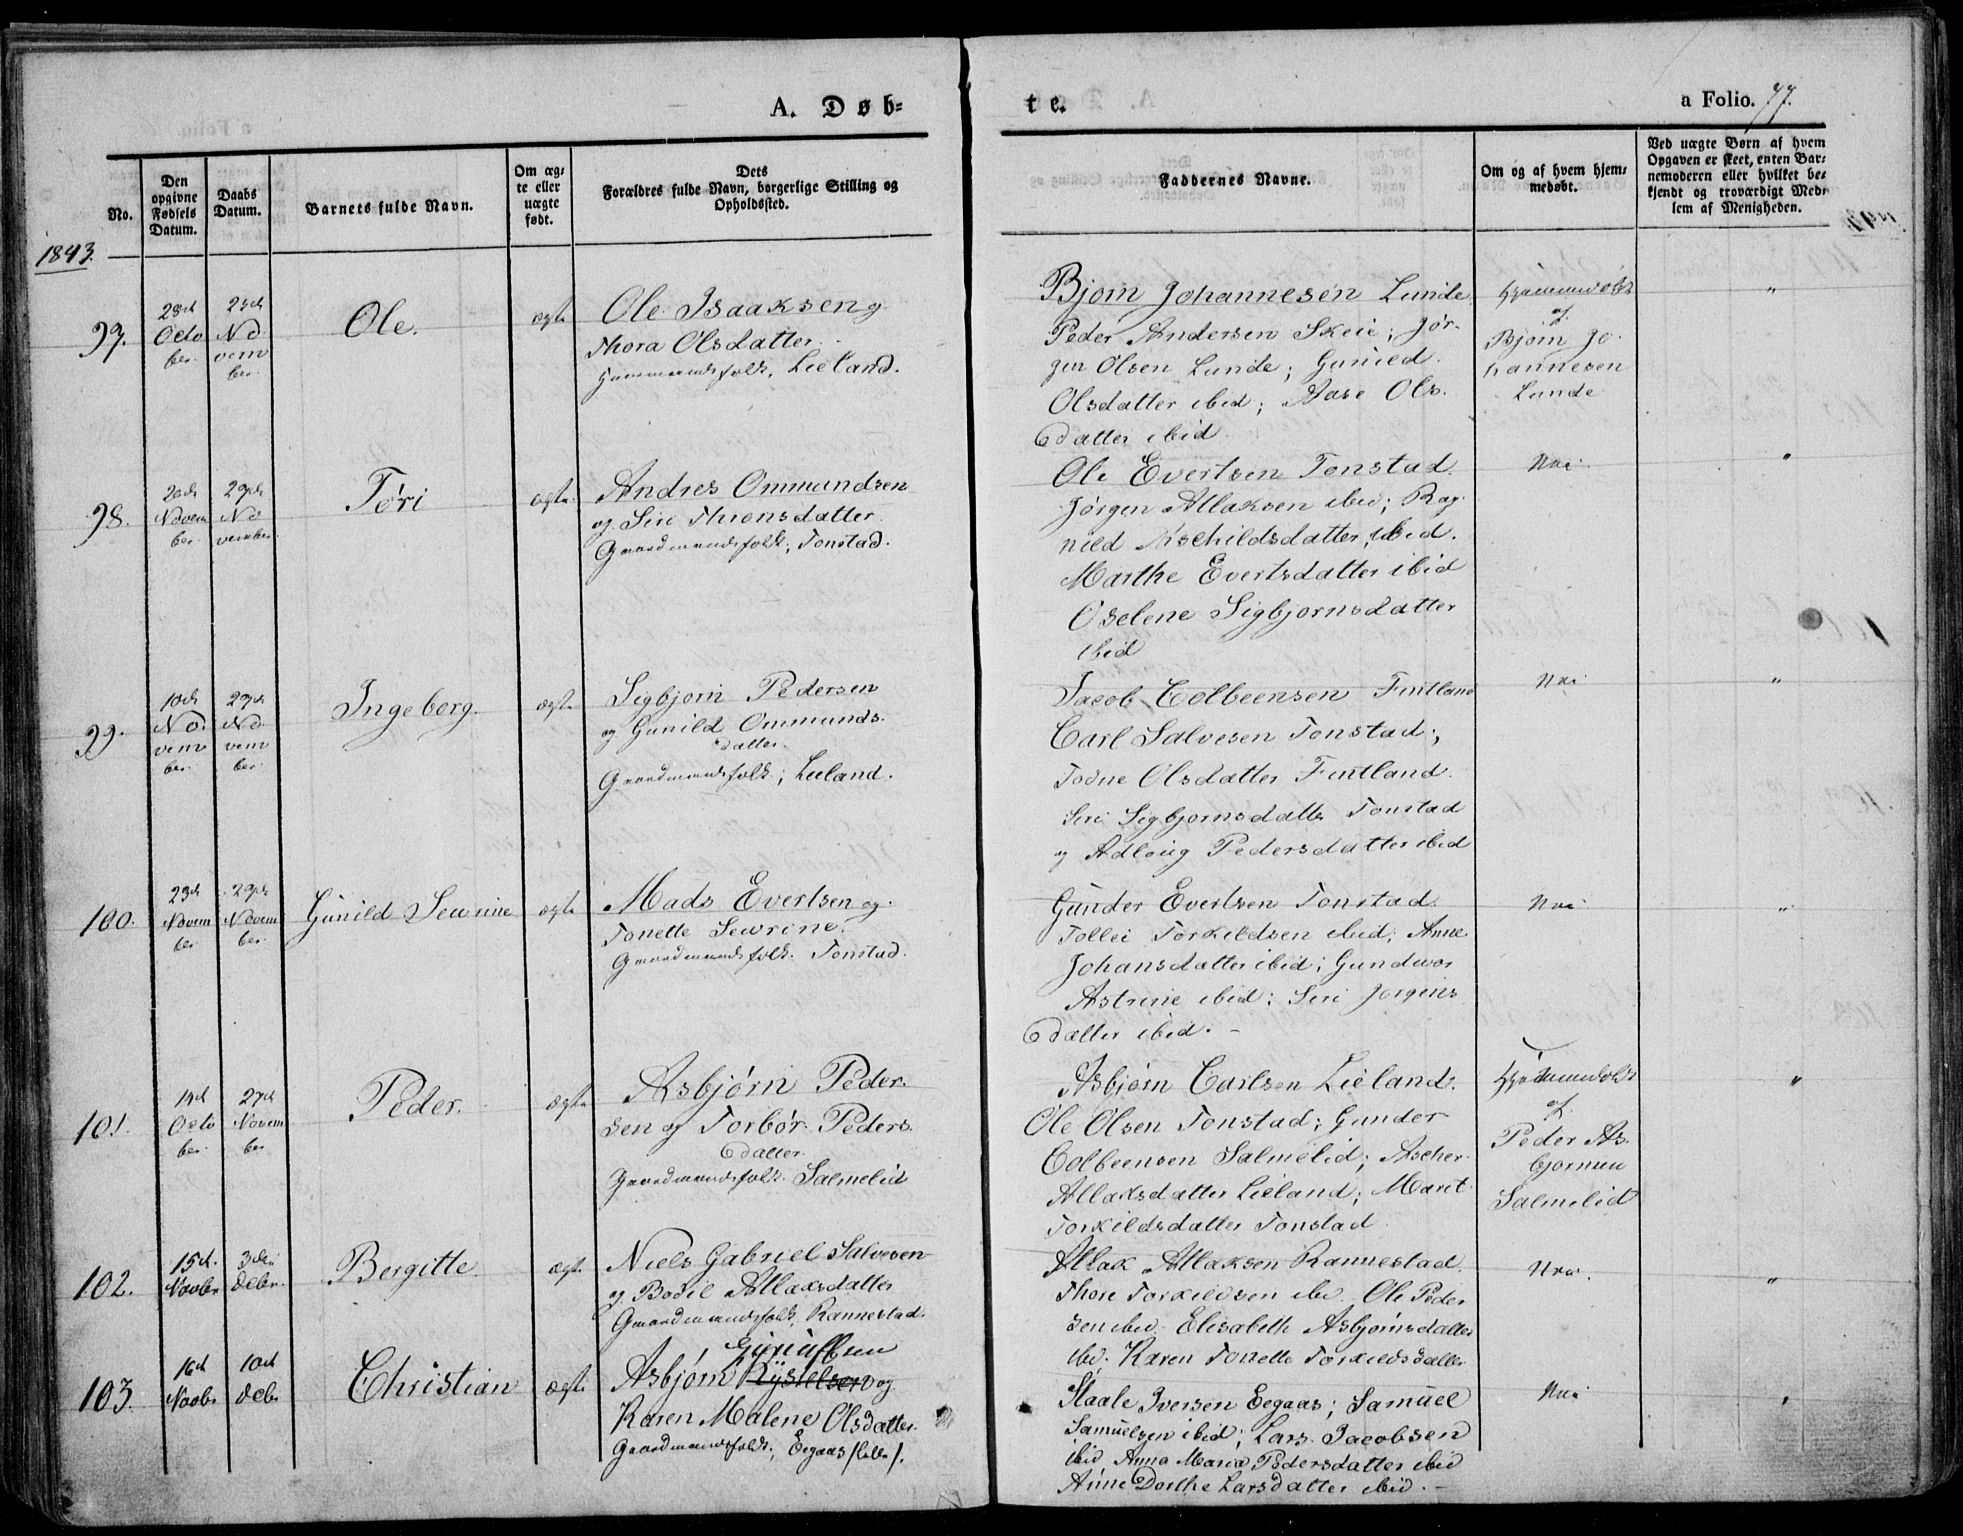 A. Døb=
te.
a Folio. 77.
No.
Den opgivne Fødsels Datum.
Daabs Datum.
Barnets fulde Navn.
Om æg= te eller uægte født.
Dets Forældres fulde Navn, borgerlige Stilling og Opholdssted.
Faddernes Navne.
Om og af hvem hjem= medøbt.
Ved uægte Børn af hvem Opgaven er skeet, enten Bar= nemoderen eller hvilket be= kjendt og troværdigt Med= lem af Menigheden.
1843.
97.
28de
Octo
ber.
No
vem
ber.
Ole.
ægte
Ole Isaaksen og
Thora Olsdatter.
Huusmandsfolk, Lieland.
Bjørn Johannesen Lunde
Peder Andersen Skeie; Jør-
gen Olsen Lunde; Gunild
Olsdatter ibid; Aase Ols-
datter ibid.
Hjemmedøbt
af
Bjørn Jo-
hannesen
Lunde
"
98.
20de
Novem
ber.
29de
No
vember.
Tøri
ægte
Andres Ommundsen
og Siri Thronsdatter
Gaardmandsfolk, Tonstad.
Ole Evertsen Tonstad.
Jørgen Atlaksen ibid; Rag-
nild Aschildsdatter, ibid.
Marthe Evertsdatter ibid
Oselene Sigbjørnsdatter
ibid
Nei.
"
99.
10de
No
vem
ber.
29de
No
vem
ber.
Ingeborg.
ægte
Sigbjørn Pedersen
og Gunild Ommunds-
datter.
Gaardmandsfolk; Lieland.
Jacob Colbeensen Fintland
Carl Salvesen Tonstad;
Todne Olsdatter Fintland.
Siri Sigbjørnsdatter Tonstad
og Adloug Pedersdatter ibid
Nei
"
100.
23de
Novem
ber.
29de
Novem
ber.
Gunild Sewrine
ægte
Mads Evertsen og
Tonette Sewrine.
Gaardmandsfolk. Tonstad.
Gunder Evertsen Tonstad
Tollei Torkildsen ibid; Anne
Johansdatter ibid; Gundwor
Astrine ibid; Siri Jørgens
datter ibid. -
Nei
"
101.
14de
Octo
ber.
27de
Novem
ber
Peder.
ægte
Asbjørn Peder-
sen og Torbør Peders-
datter.
Gaardmandsfolk. Salmelid
Asbjørn Carlsen Lieland.
Ole Olsen Tonstad; Gunder
Colbeensen Salmelid; Ascher
Atlaksdatter Lieland; Marit
Torkildsdatter Tonstad
Hjemmedøbt
af
Peder As-
bjørnsen
Salmelid
"
102.
15de
Novbr
3die
Debr.
Bergitte.
ægte
Niels Gabriel Salvesen
og Bodil Atlaksdatter
Gaardmandsfolk, Rannestad.
Atlak Atlaksen Rannestad.
Thore Torkildsen ibid. Ole Peder
sen ibid. Elisabeth Asbjørnsdatter
ibid; Karen Tonette Torkildsdatter
Nei.
"
103.
16de
Novbr
10de
Debr
Christian
ægte
Asbjørn og
Karen Malene Olsdatter.
Gaardmandsfolk; Eegaas
Staale Iversen Eegaas; Samuel
Samuelsen ibid; Lars Jacobsen
ibid Anna Maria Pedersdatter ibid
Anne Dorthe Larsdatter ibid. -
Nei
"